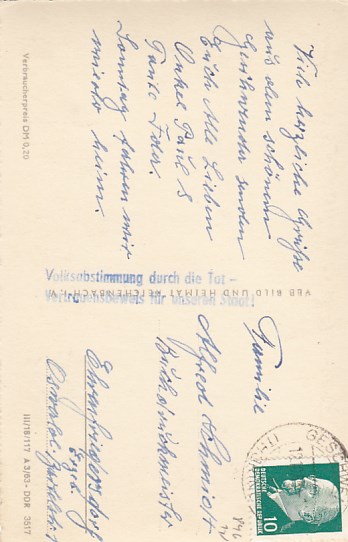 Viele herzliche Grüße
aus dem schönen
Geschwenda senden
Euch Alle Lieben
Onkel Paul &
Tante
Sonntag fahren wir
wieder heim.
Verbraucherpreis DM 0,20
Volksabstimmung durch die Tat –
Vertrauensbeweis für unseren Staat!
VEB BILD UND HEIMAT REICHENBACH I. V.
Familie
Alfred Schmidt
Ehrenfriedersdorf
Erzg.
III/18/117 A 3/63 - DDR 3517
GESCHWE
12
DEUTSCHE
DEMOKRATISCHE REPUBLIK
10